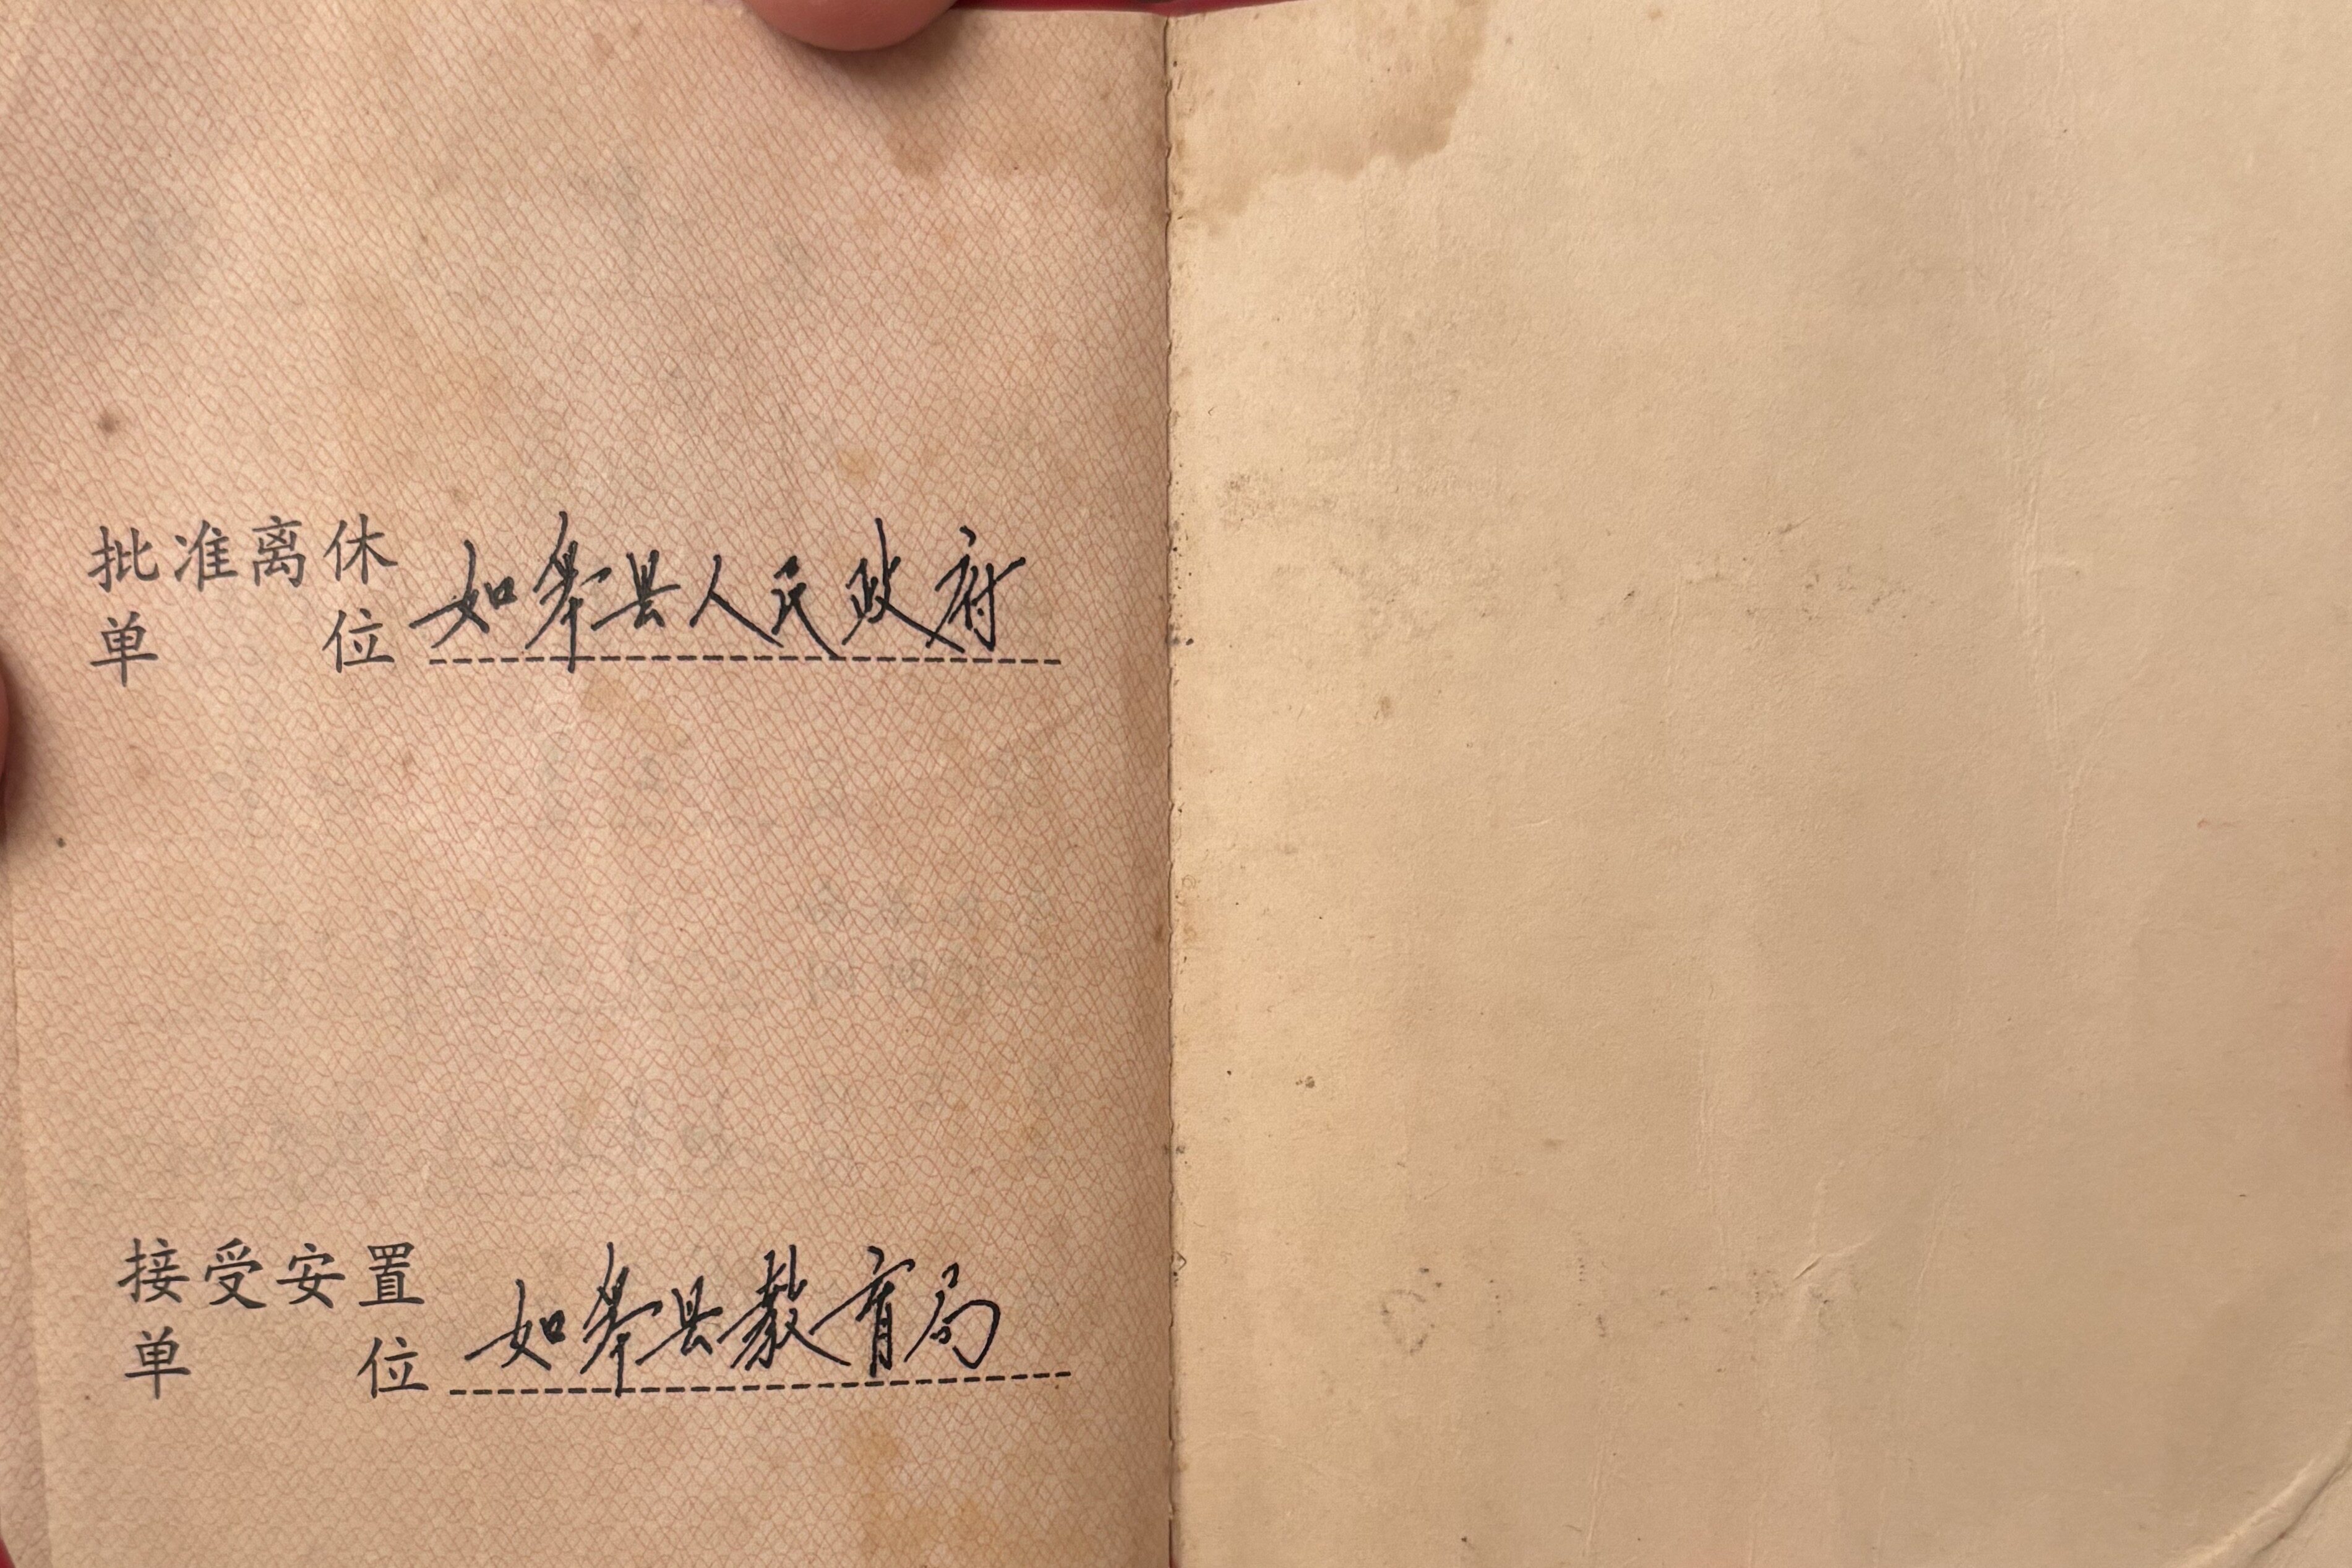 批准离休
单位 如皋县人民政府
接受安置
单位 如皋县教育局